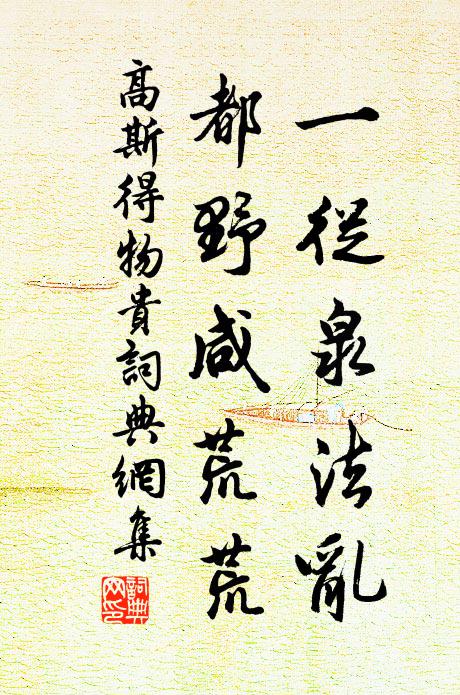 一從泉法亂
都野咸荒荒
高斯得物貴詞典網集
詞典網印